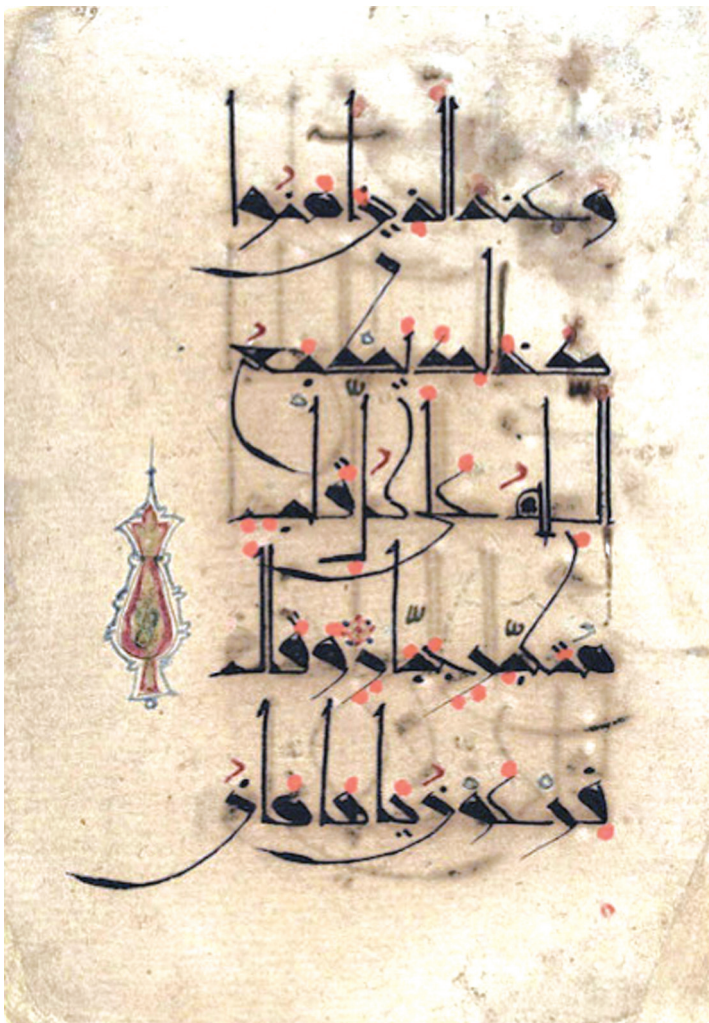 وَعِنْدَ الَّذِينَ اٰمَنُوا
كَذَلِكَ يَطْبَعُ
اللَّهُ عَلَى كُلِّ قَلْبِ
مُتَكَبِّرٍ جَبَّارٍ وَقَالَ
فِرْعَوْنُ يَاهَامَانُ